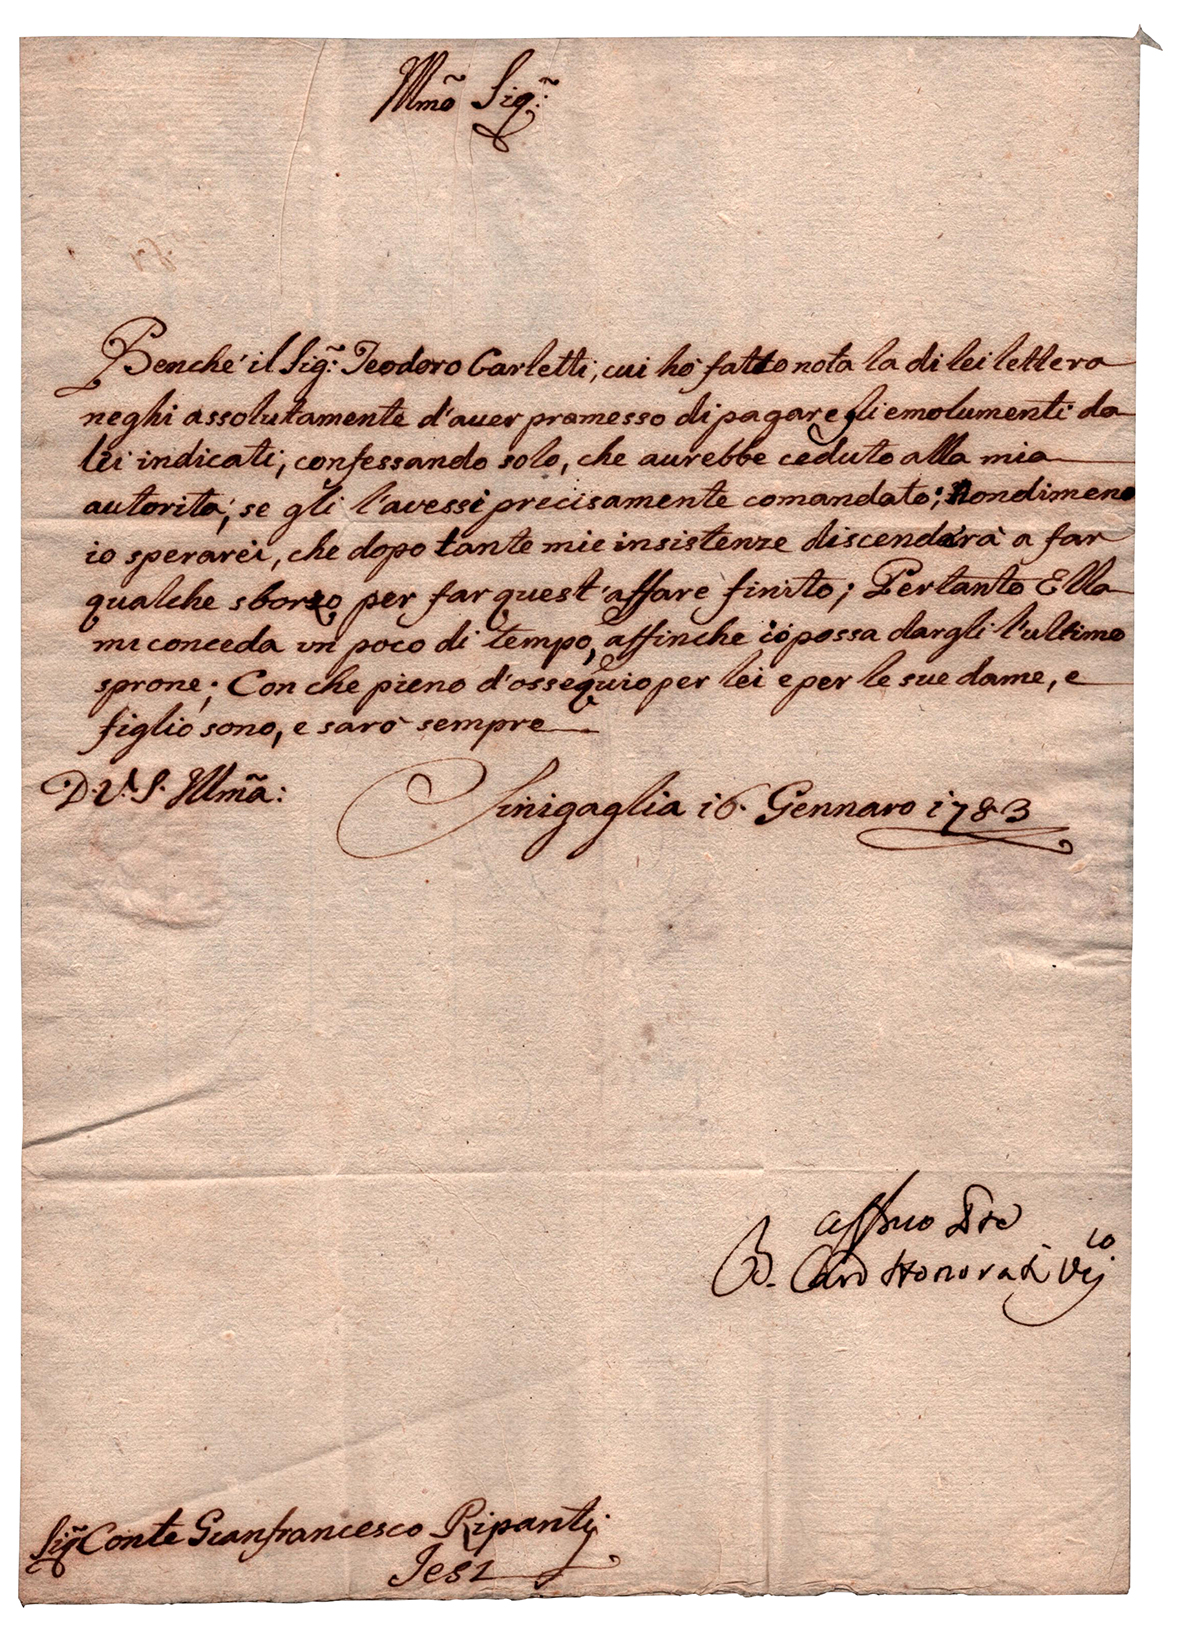 Illmõ Sig.~:
Benche' il Sig.~: Teodoro Carletti, cui hò fatto nota la di lei lettera
neghi assolutamente d'auer promesso di pagare gli emolumenti da
lei indicati, confessando solo, che aurebbe ceduto alla mia
autorità, se gli l'avessi precisamente comandato; Nondimeno
io sperarei, che dopo tante mie insistenze discenderà a far
qualche sborzo per far quest'affare finito; Pertanto Ella
mi conceda un poco di tempo, affinche io possa dargli l'ultimo
sprone; Con che pieno d'ossequio per lei e per le sue dame, e
figlio sono, e sarò sempre
D. V. S. Illmã:
Sinigaglia 16. Gennaro 1783
affmo
B. Card Honorati Vo
Sig.~ Conte Gianfrancesco Ripanti
Jesi